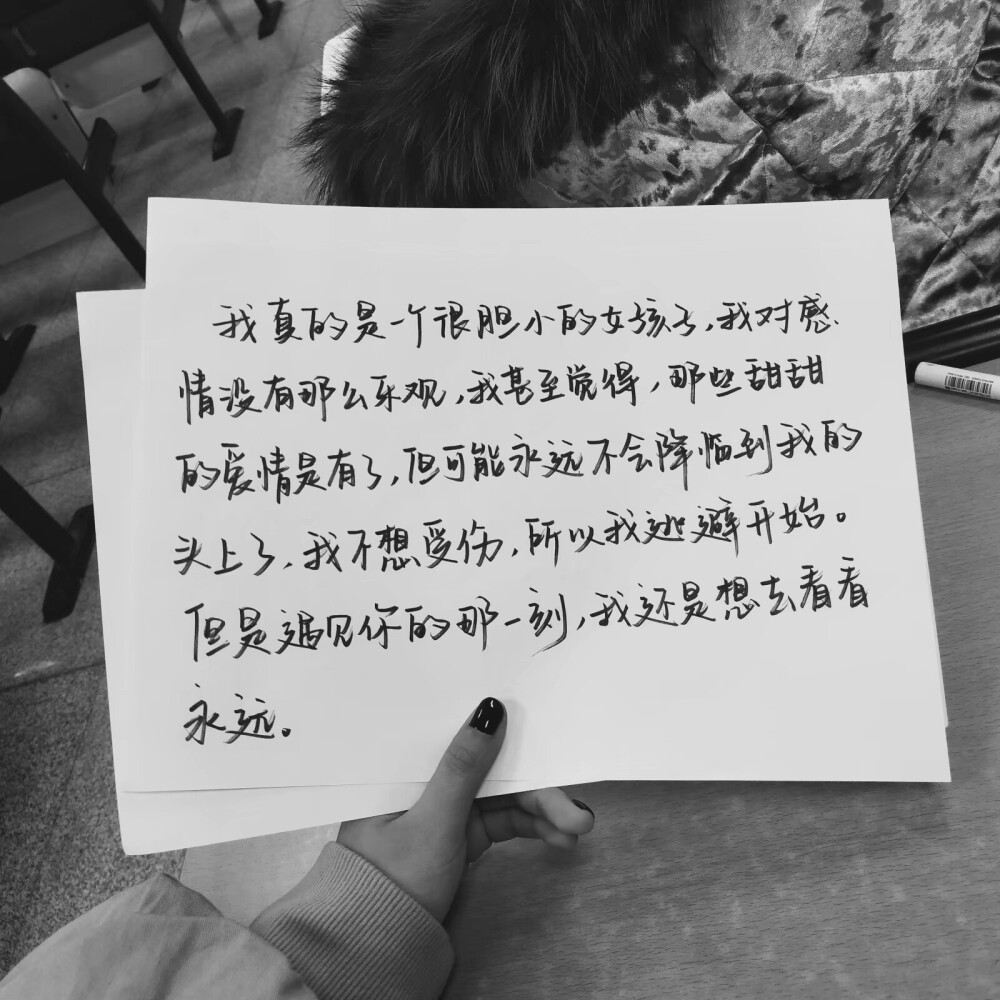 我真的是一个很胆小的女孩子，我对感
情没有那么乐观，我甚至觉得，那些甜甜
的爱情是有了，但可能永远不会降临到我的
头上了，我不想受伤，所以我逃避开始。
但是遇见你的那一刻，我还是想去看看
永远。